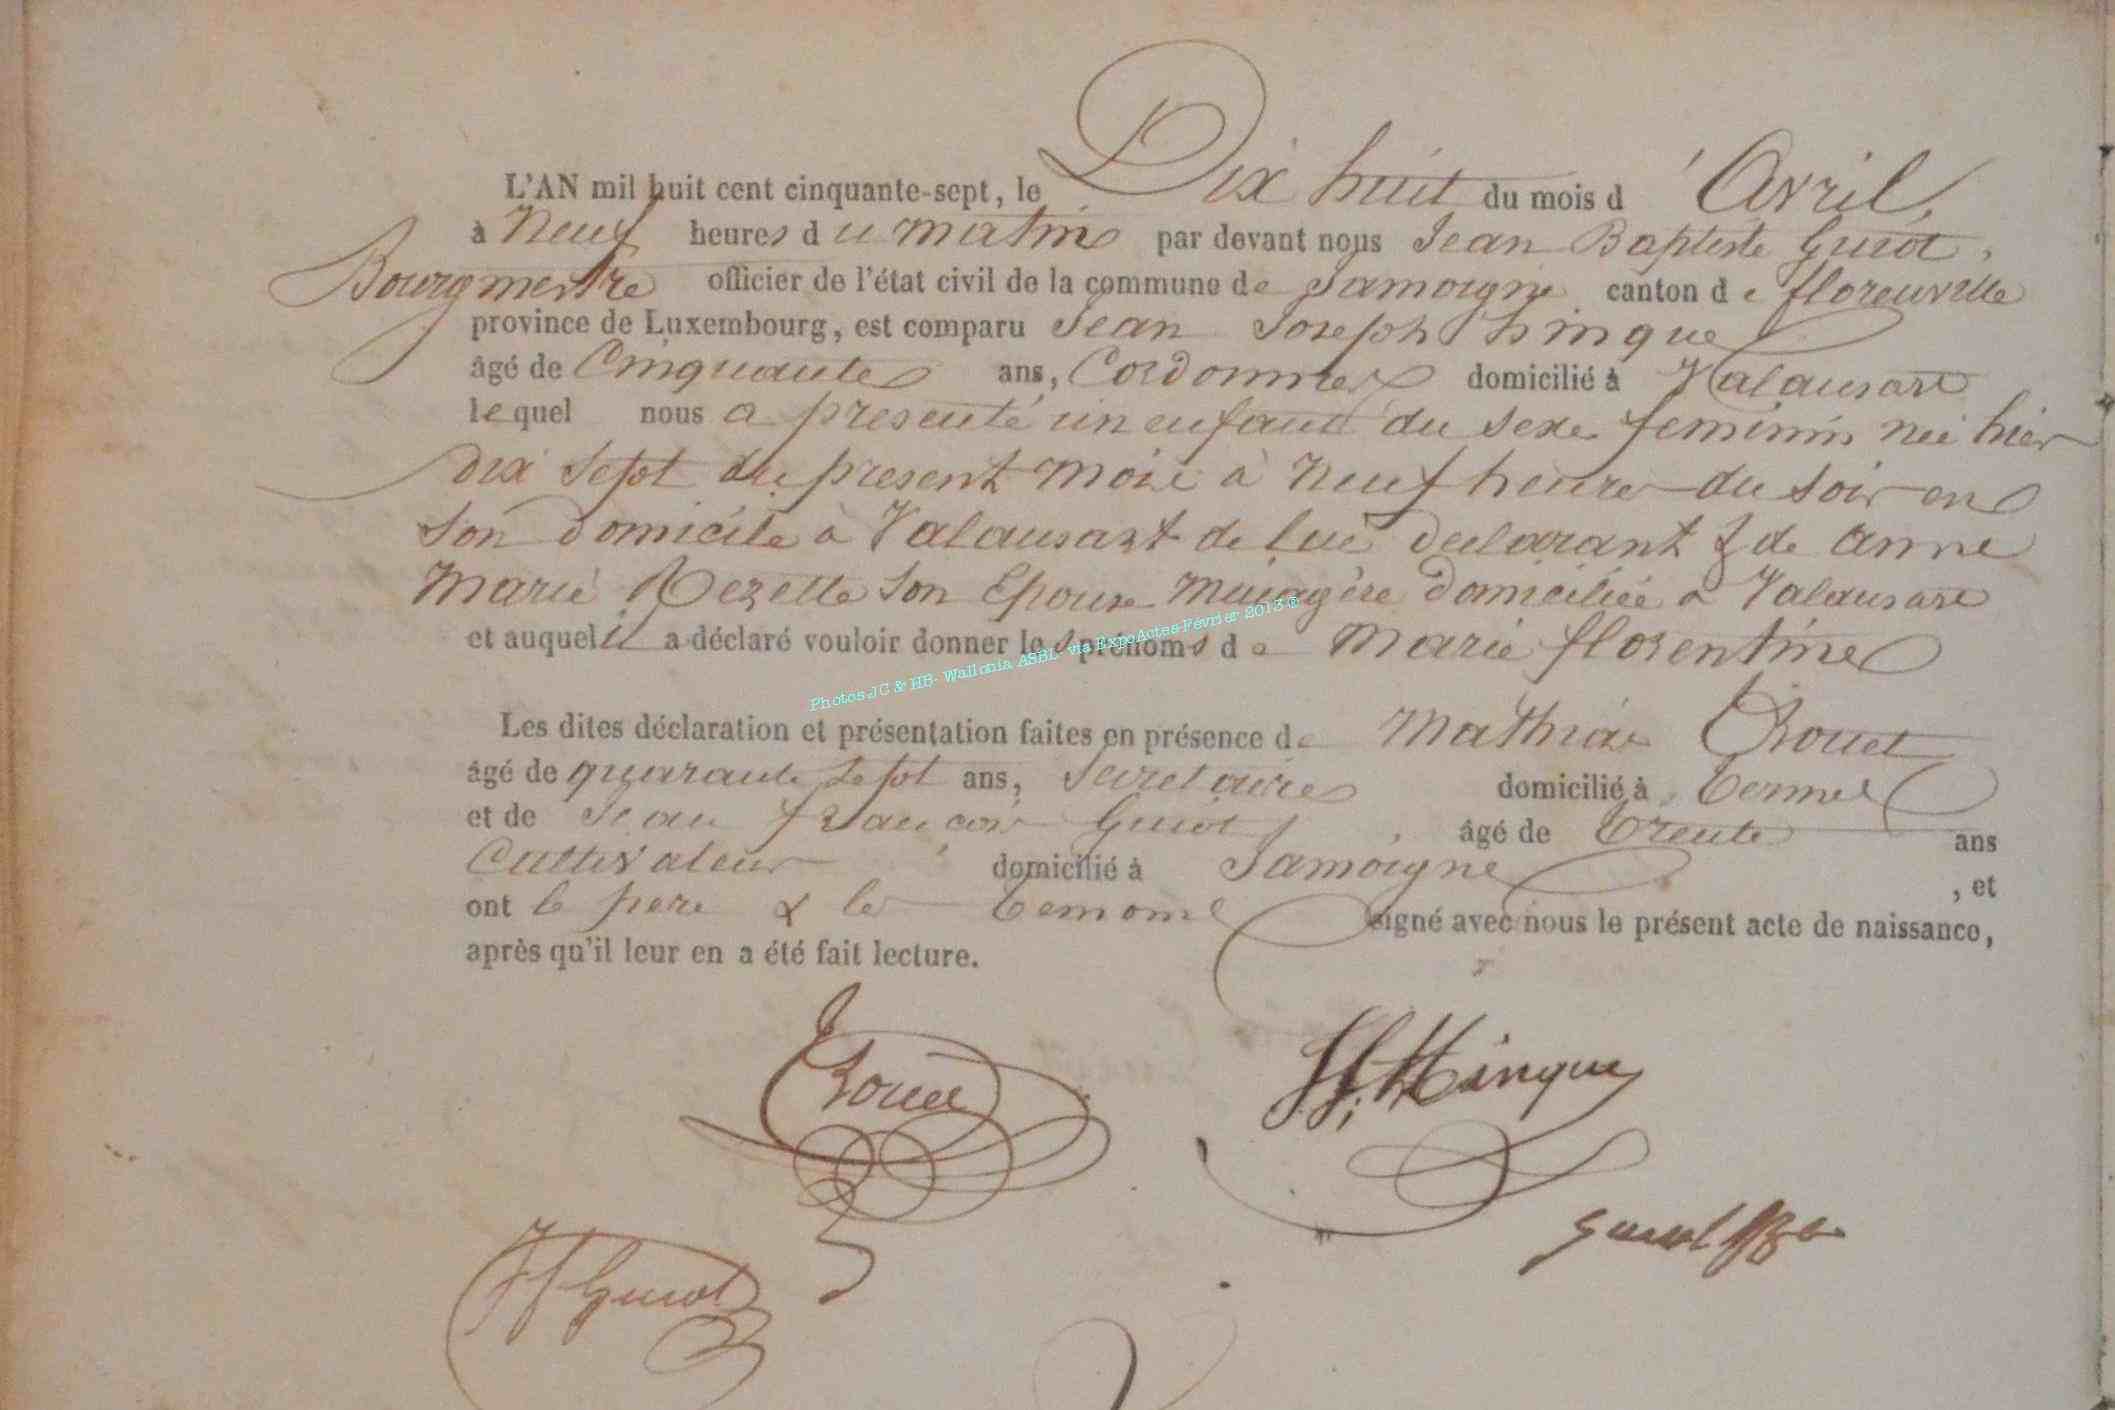 L'AN mil huit cent cinquante-sept, le Dix huit du mois d'Avril,
à Neuf heures du matin par devant nous Jean Baptiste Guiot,
Bourgmestre officier de l'état civil de la commune de Jamoigne canton de florenville
province de Luxembourg, est comparu Jean Joseph hinque
âgé de Cinquante ans, Cordonnier domicilié à Valansart
lequel nous a presenté un enfant du sexe feminin née hier
dix sept du present mois à neuf heures du soir en
son domicile à Valansart de lui declarant & de anne
Marie Rezette son Epouse menagère domiciliée à Valansart
et auquel il a déclaré vouloir donner les prénoms de Marie florentine
Photos JC & HB- Wallonia ASBL- via ExpoActes-Fevrier 2013 ©
Les dites déclaration et présentation faites en présence de Mathias Rouet
âgé de quarante sept ans, Secretaire domicilié à Termes
et de Jean françois Guiot, âgé de trente ans
Cultivateur domicilié à Jamoigne, et
ont le pere & les temoins signé avec nous le présent acte de naissance,
après qu'il leur en a été fait lecture.
Rouet
JJ. Hinque
Guiot
JfGuiot